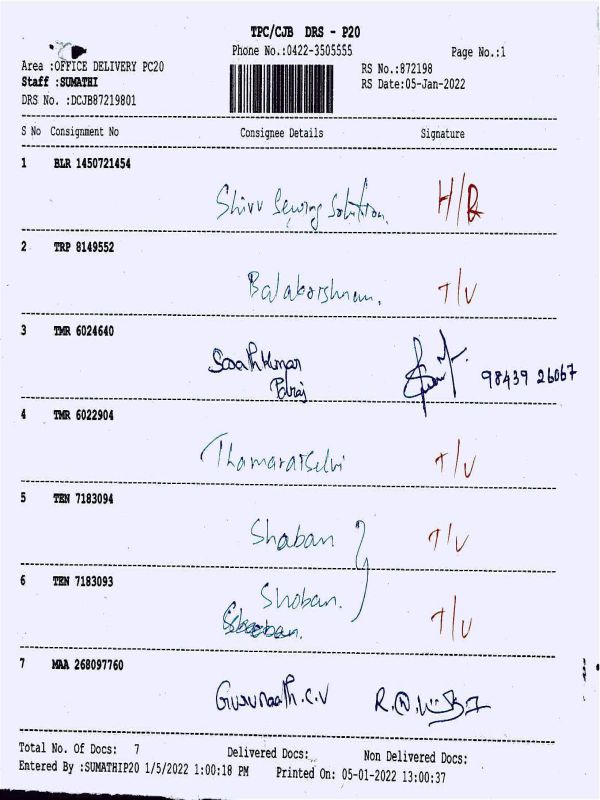 TPC/CJB DRS - P20
Phone No.:0422-3505555
Page No.:1
Area :OFFICE DELIVERY PC20
RS No.:872198
Staff :SUMATHI
RS Date:05-Jan-2022
DRS No. :DCJB87219801
S No Consignment No Consignee Details Signature
1 BLR 1450721454
Shivv Sewing Solution. H/R
2 TRP 8149552
Balakarshnan. T/V
3 TMR 6024640
98439 26067
4 TMR 6022904
Thamaraiselvi T/V
5 TEN 7183094
Shaban T/V
6 TEN 7183093
Shoban. T/V
7 MAA 268097760
Gurunaath.C.V
Total No. Of Docs: 7 Delivered Docs: Non Delivered Docs:
Entered By :SUMATHIP20 1/5/2022 1:00:18 PM Printed On: 05-01-2022 13:00:37